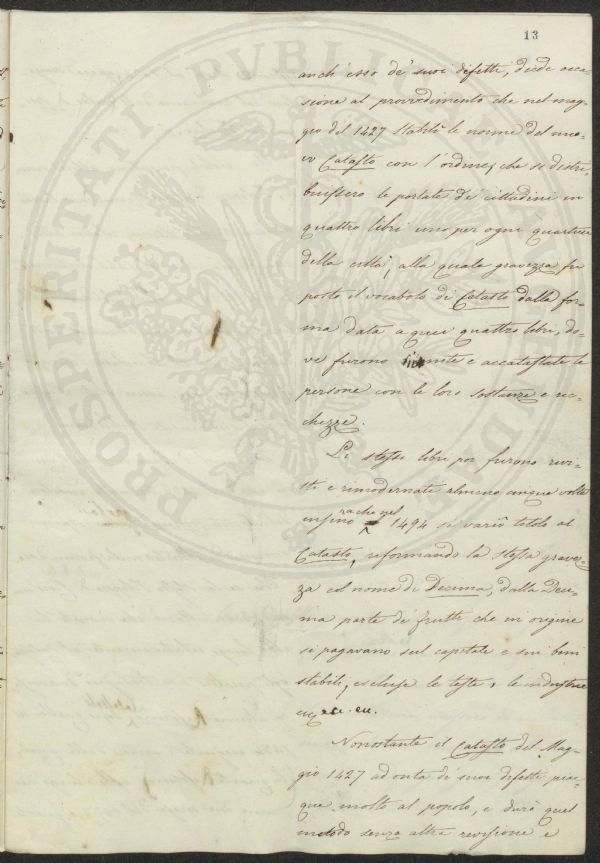 13
anch'esso de' suoi difetti, diede occa-
sione al provvedimento che nel mag-
gio del 1427 stabilì le norme del nuo-
vo Catasto con l'ordine, che si distri
buissero le portate de' cittadini in
quattro libri uno per ogni quartiere
della città; alla quale gravezza fu
posto il vocabolo di Catasto dalla for
ma data a quei quattro libri, do-
ve furono riunite e accatastate le
persone con le loro sostanze e ric-
chezze.
Gli stessi libri poi furono rivi-
sti e rimodernati almeno cinque volte
nel 1494 si variò titolo al
Catasto, riformando la stessa gravez-
za col nome di Decima, dalla Deci-
ma parte di frutti che in origine
si pagavano sul capitale e sui beni
stabili, escluse le teste, le industrie
ecc. ecc.
Nonostante il Catasto del Mag-
gio 1427 ad onta di suoi difetti, piac-
que molto al popolo, e durò quel
metodo senza altra revisione e
PROSPERITATI PVBLICAE